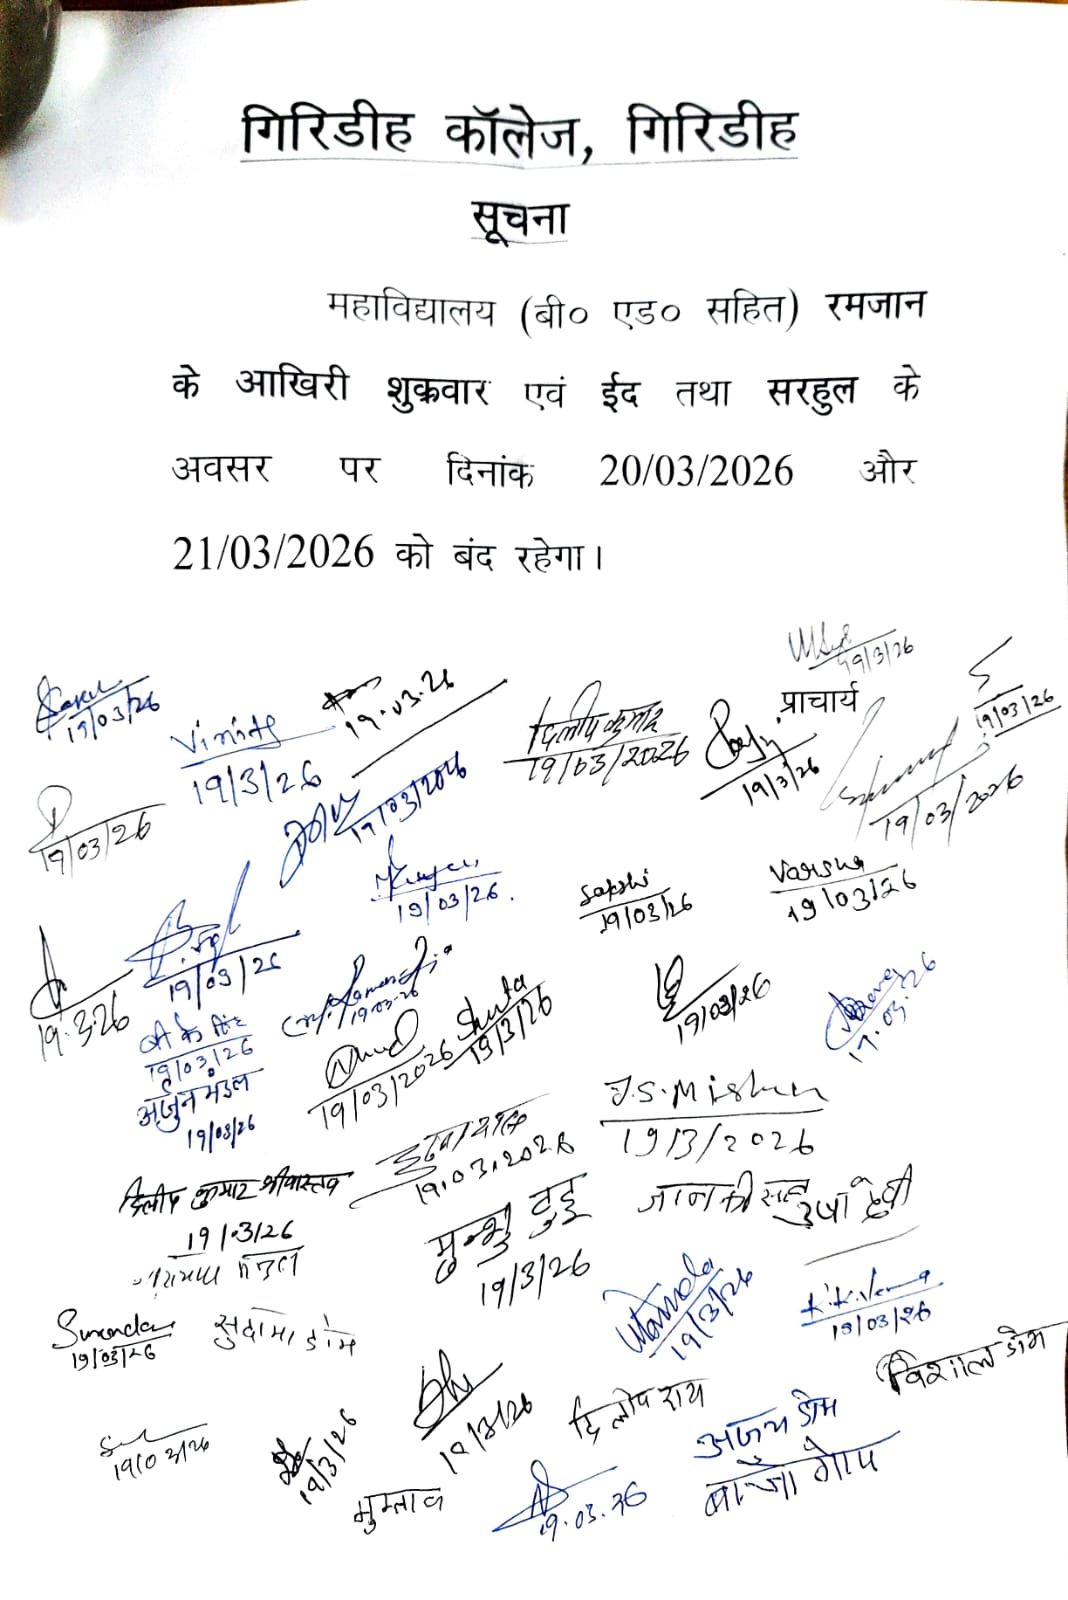 गिरिडीह कॉलेज, गिरिडीह
सूचना
महाविद्यालय (बी० एड० सहित) रमजान
के आखिरी शुक्रवार एवं ईद तथा सरहुल के
अवसर पर दिनांक 20/03/2026 और
21/03/2026 को बंद रहेगा।
19/3/26
प्राचार्य
19/03/26
19/03/26
19.03.26
Vinit
19/3/26
दिलीप कुमार
19/03/2026
19/3/26
19/03/2026
19/03/26
19/03/2026
19/03/26.
Sakshi
19/03/26
Varsha
19/03/26
19/03/26
19.3.26
19.03.26
Shweta
19/3/26
19/03/26
बी के सिंह
19/03/26
19/03/2026
अर्जुन मंडल
19/03/26
J.S. Mishra
19/3/2026
19.03.2026
दिलीप कुमार श्रीवास्तव
19/03/26
मुन्शु टुडू
19/3/26
जानकी साव
उषा देवी
मंडल
19/3/26
K.K. Verma
19/03/26
Surendar
19/03/26
सुदामा डोम
19/3/26
दिलीप राय
विशाल डोम
अजय डोम
19/03/26
19/3/26
मुमताज
19.03.26
गोप